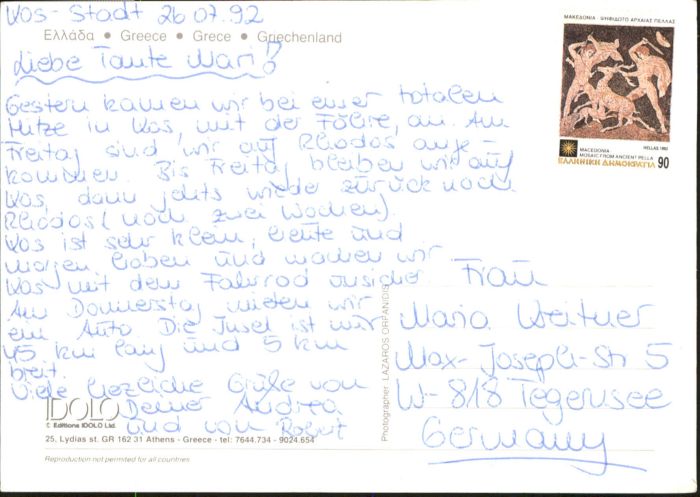 Kos-Stadt 26.07.92
Ελλάδα • Greece • Grece • Griechenland
Liebe Tante Mari!
Gestern kamen wir bei einer totalen
Hitze in Kos, mit der Fähre, an. Am
Freitag sind wir auf Rhodos ange-
kommen. Bis Freitag bleiben wir auf
Kos, dann gehts wieder zurück nach
Rhodos (noch zwei Wochen).
Kos ist sehr klein, heute und
morgen haben und machen wir
Kos mit dem Fahrrad unsicher
Am Donnerstag mieten wir
ein Auto Die Insel ist nur
45 km lang und 5 km
breit.
Viele herzliche Grüße von
Deiner Andrea
und von Robert
ΜΑΚΕΔΟΝΙΑ - ΨΗΦΙΔΩΤΟ ΑΡΧΑΙΑΣ ΠΕΛΛΑΣ
HELLAS 1992
MACEDONIA
MOSAIC FROM ANCIENT PELLA
ΕΛΛΗΝΙΚΗ ΔΗΜΟΚΡΑΤΙΑ 90
Frau
Maria Weitner
Max-Joseph-Str 5
W-818 Tegernsee
Germany
Photographer: LAZAROS ORFANIDIS
IDOLO
© Editions IDOLO Ltd.
25, Lydias st. GR 162 31 Athens - Greece - tel: 7644.734 - 9024.654
Reproduction not permited for all countries